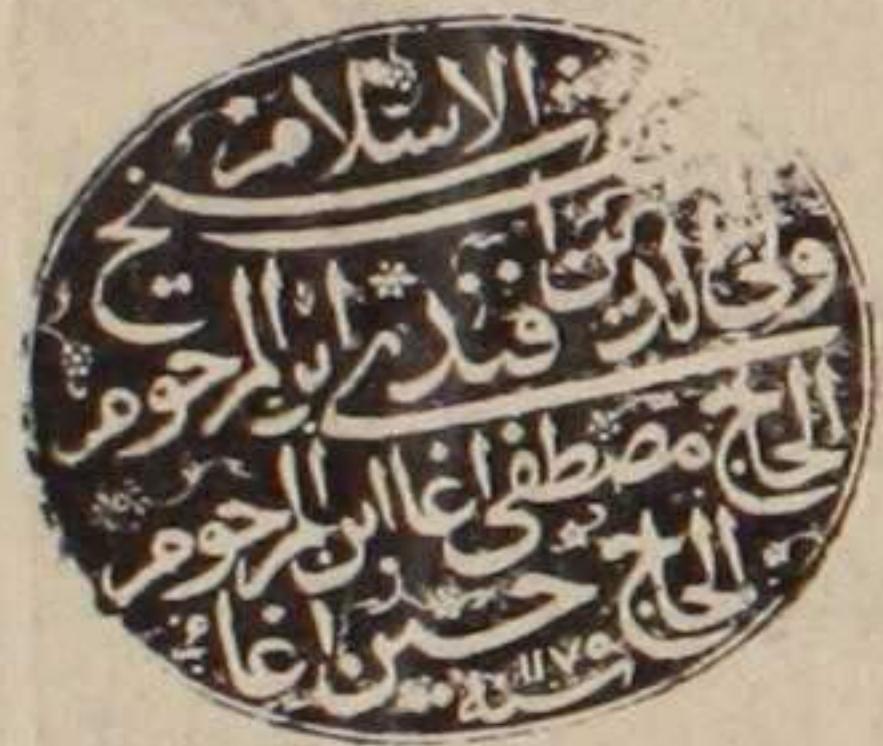 شيخ الاسلام
ولي الدين افندي ابن المرحوم
الحاج مصطفى اغا ابن المرحوم
الحاج حسين اغا
سنة ١١٧٥